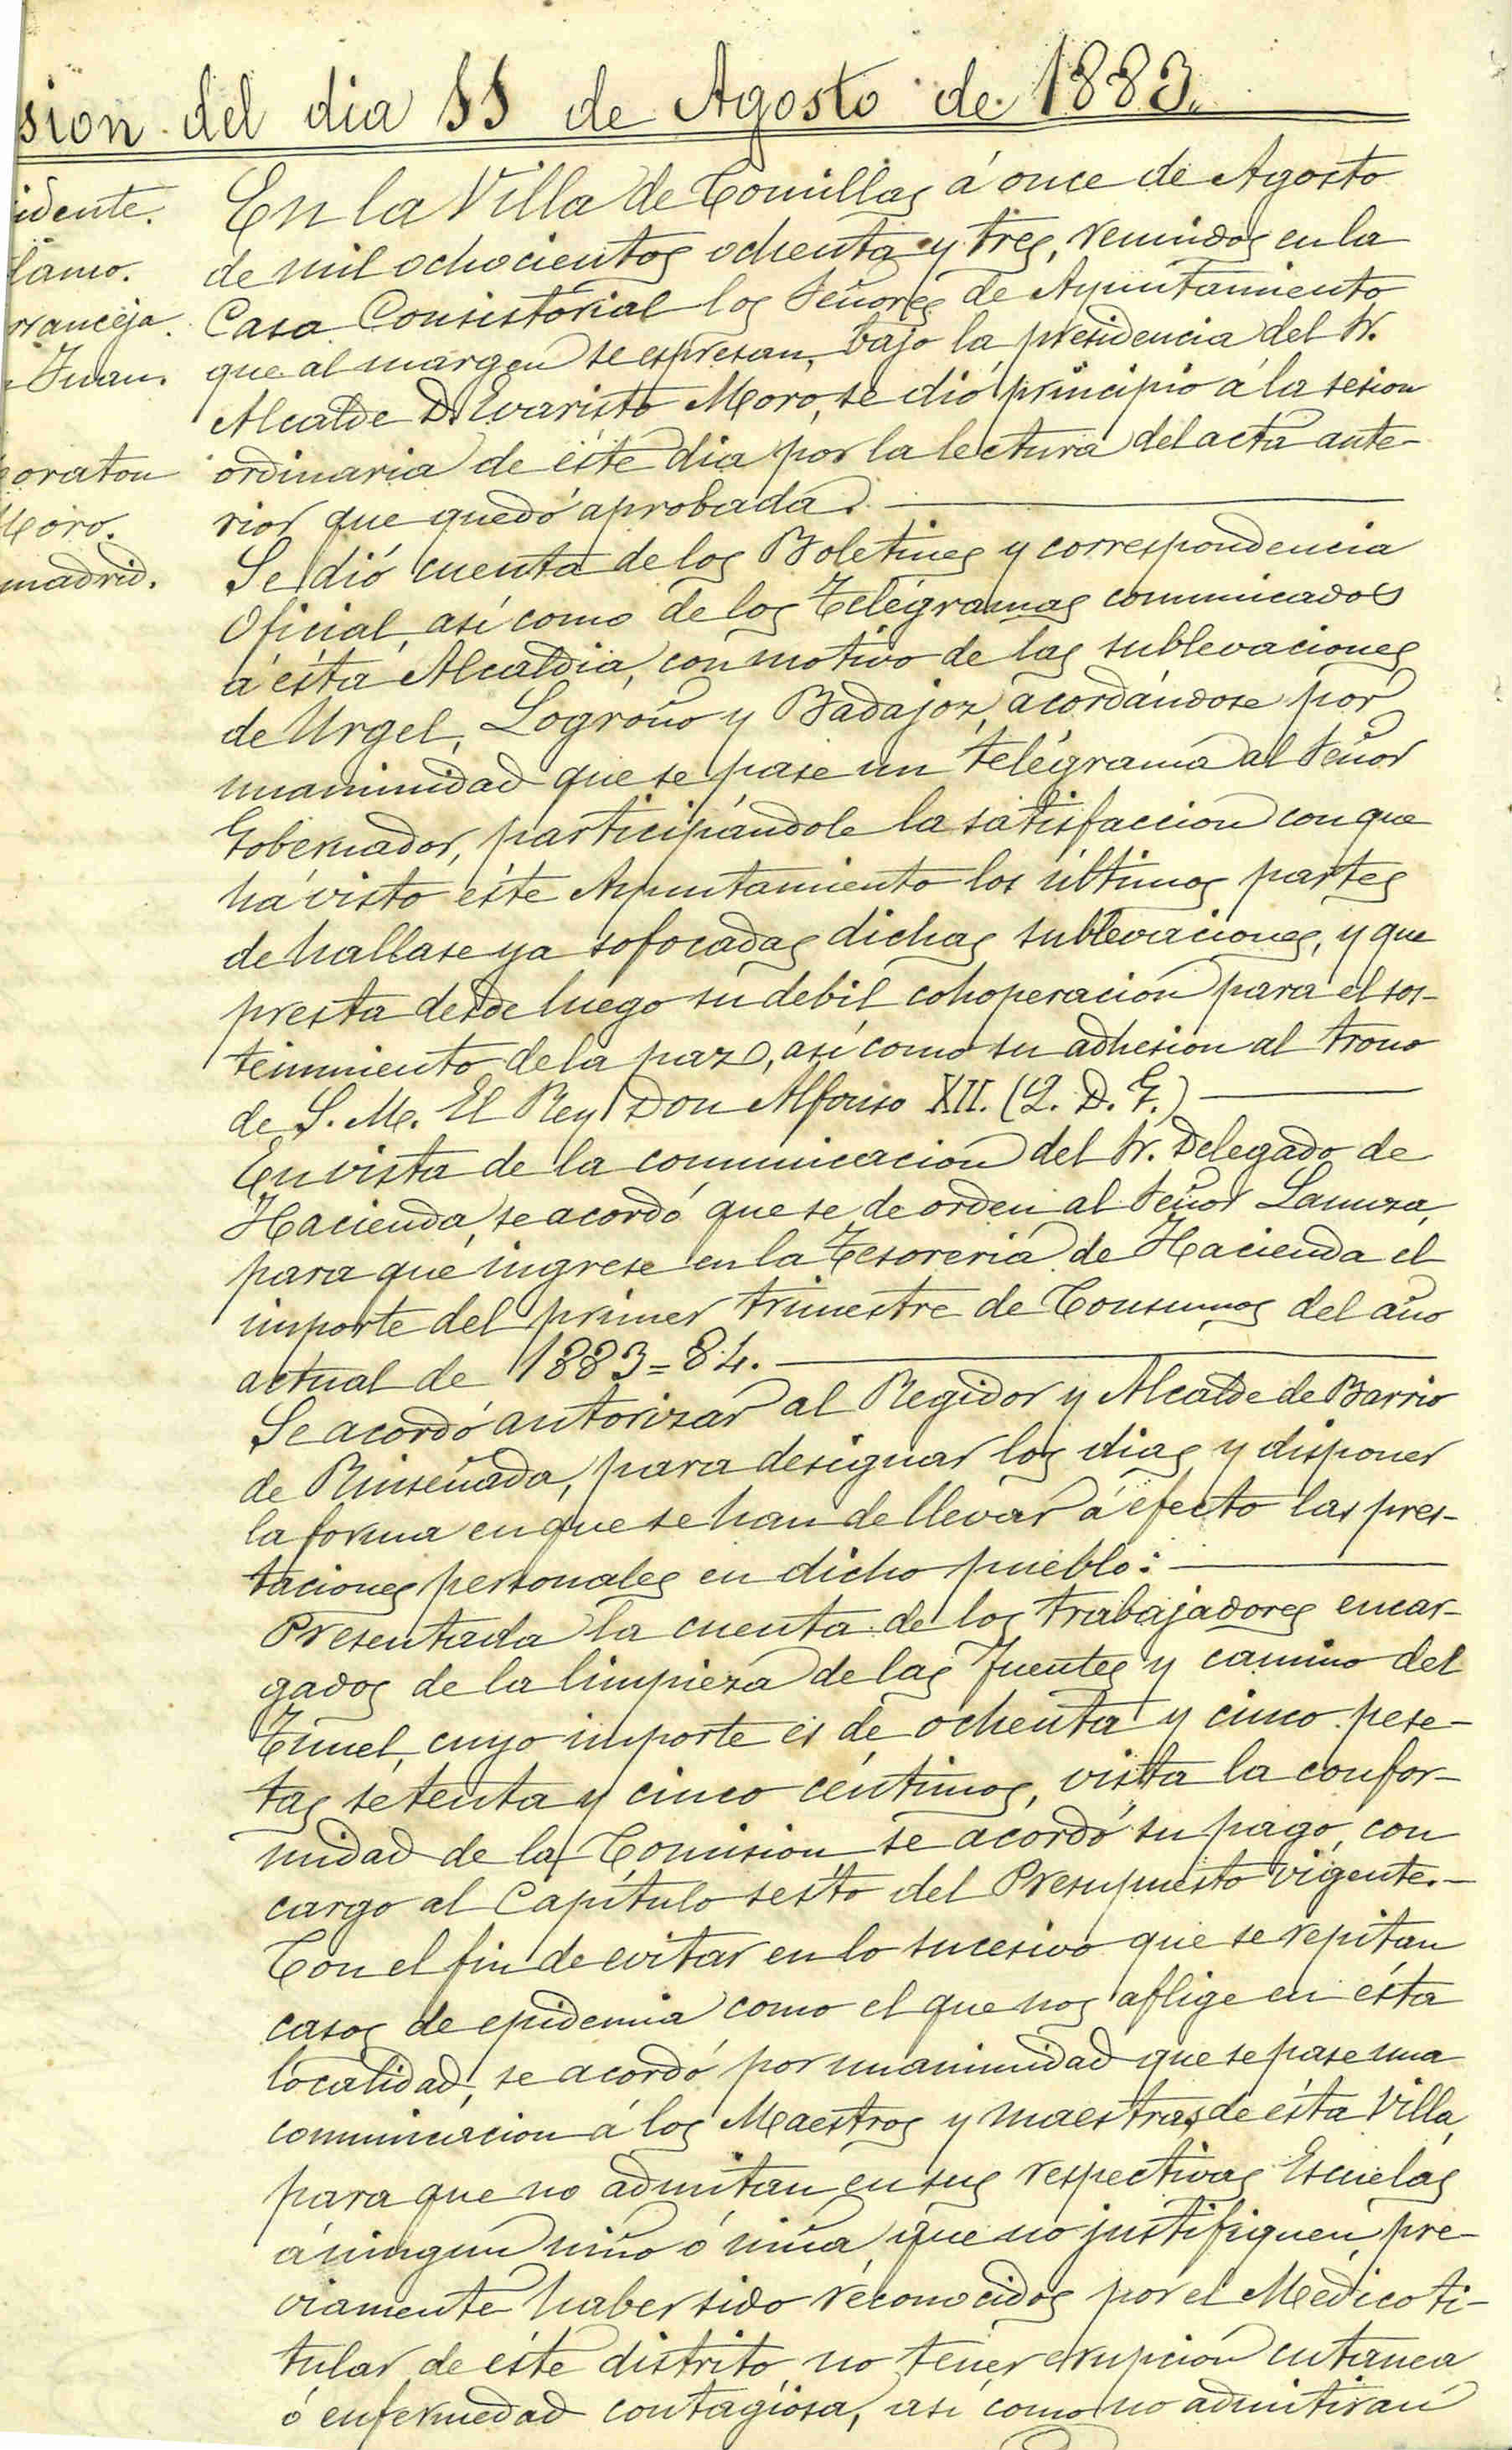 sion del dia 11 de Agosto de 1883.
idente.
lamo.
rranceja.
Juan.
oraton
Moro.
madrid.
En la Villa de Comillas á once de Agosto
de mil ochocientos ochenta y tres, reunidos en la
Casa Consistorial los Señores de Ayuntamiento
que al margen se espresan, bajo la presidencia del Sr.
Alcalde D. Evaristo Moro, se dió principio á la sesion
ordinaria de éste dia por la lectura del acta ante-
rior que quedó aprobada.
Se dió cuenta de los Boletines y correspondencia
Oficial, así como de los Telégramas comunicados
á ésta Alcaldia, con motivo de las sublevaciones
de Urgel, Logroño y Badajoz, acordándose por
unanimidad que se pase un telégrama al Señor
Gobernador, participándole la satisfaccion con que
há visto éste Ayuntamiento los últimos partes
de hallase ya sofocadas dichas sublevaciones, y que
presta desde luego su debil cohoperacion para el sos-
tenimiento de la paz, así como su adhesion al trono
de S. M. El Rey Don Alfonso XII. (Q. D. G.)
En vista de la comunicacion del Sr. Delegado de
Hacienda, se acordó que se de orden al Señor Lamuza,
para que ingrese en la Tesoreria de Hacienda el
importe del primer trimestre de Consumos del año
actual de 1883=84.
Se acordó autorizar al Regidor y Alcalde de Barrio
de Ruiseñada, para designar los dias y disponer
la forma en que se han de llevar á efecto las pres-
taciones personales en dicho pueblo:
Presentada la cuenta de los trabajadores encar-
gados de la limpieza de las fuentes y camino del
Túnel, cuyo importe es de ochenta y cinco pese-
tas setenta y cinco céntimos, vista la confor-
midad de la Comision, se acordó su pago, con
cargo al Capítulo sesto del Presupuesto vigente.
Con el fin de evitar en lo sucesivo que se repitan
casos de epidemia como el que nos aflige en ésta
localidad, se acordó por unanimidad que se pase una
comunicacion á los Maestros y maestras de ésta Villa,
para que no admitan en sus respectivas Escuelas
á ningun niño ó niña, que no justifiquen pre-
viamente haber sido reconocidos por el Médico ti-
tular de éste distrito, no tener erupcion cutanea
ó enfermedad contagiosa, así como no admitirán